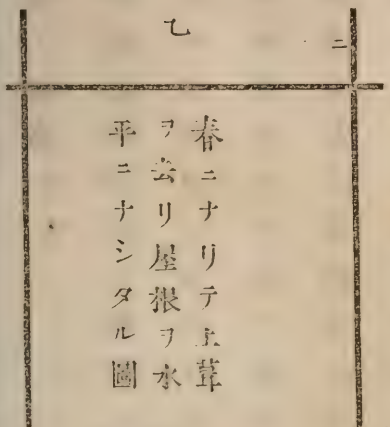 二
乙
春ニナリテ上葺
ヲ去リ屋根ヲ水
平ニナシタル圖